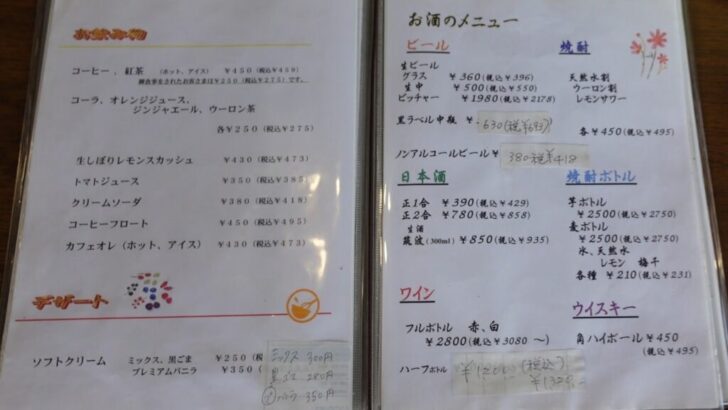 お飲み物
コーヒー、紅茶 (ホット、アイス) ¥450(税込¥495)
御食事をされたお客さまは¥250(税込¥275)です。
コーラ、オレンジジュース、
ジンジャエール、ウーロン茶
各¥250(税込¥275)
生しぼりレモンスカッシュ ¥430(税込¥473)
トマトジュース ¥350(税込¥385)
クリームソーダ ¥380(税込¥418)
コーヒーフロート ¥450(税込¥495)
カフェオレ(ホット、アイス) ¥430(税込¥473)
デザート
ソフトクリーム ミックス、黒ごま ¥250
プレミアムバニラ ¥350
ミックス 300円
黒ゴマ 280円
バニラ 350円
お酒のメニュー
ビール
生ビール
グラス ¥360(税込¥396)
生中 ¥500(税込¥550)
ピッチャー ¥1980(税込¥2178)
黒ラベル中瓶 ¥ 630(税¥693)
ノンアルコールビール ¥ 380 税¥418
日本酒
正1合 ¥390(税込¥429)
正2合 ¥780(税込¥858)
生酒
筑波(300ml) ¥850(税込¥935)
ワイン
フルボトル 赤、白
¥2800(税込¥3080 ～)
ハーフボトル ¥1200(税込)
¥1320
焼酎
天然水割
ウーロン割
レモンサワー
各¥450(税込¥495)
焼酎ボトル
芋ボトル
¥2500(税込¥2750)
麦ボトル
¥2500(税込¥2750)
水、天然水
レモン 梅干
各種 ¥210(税込¥231)
ウイスキー
角ハイボール ¥450
(税込¥495)